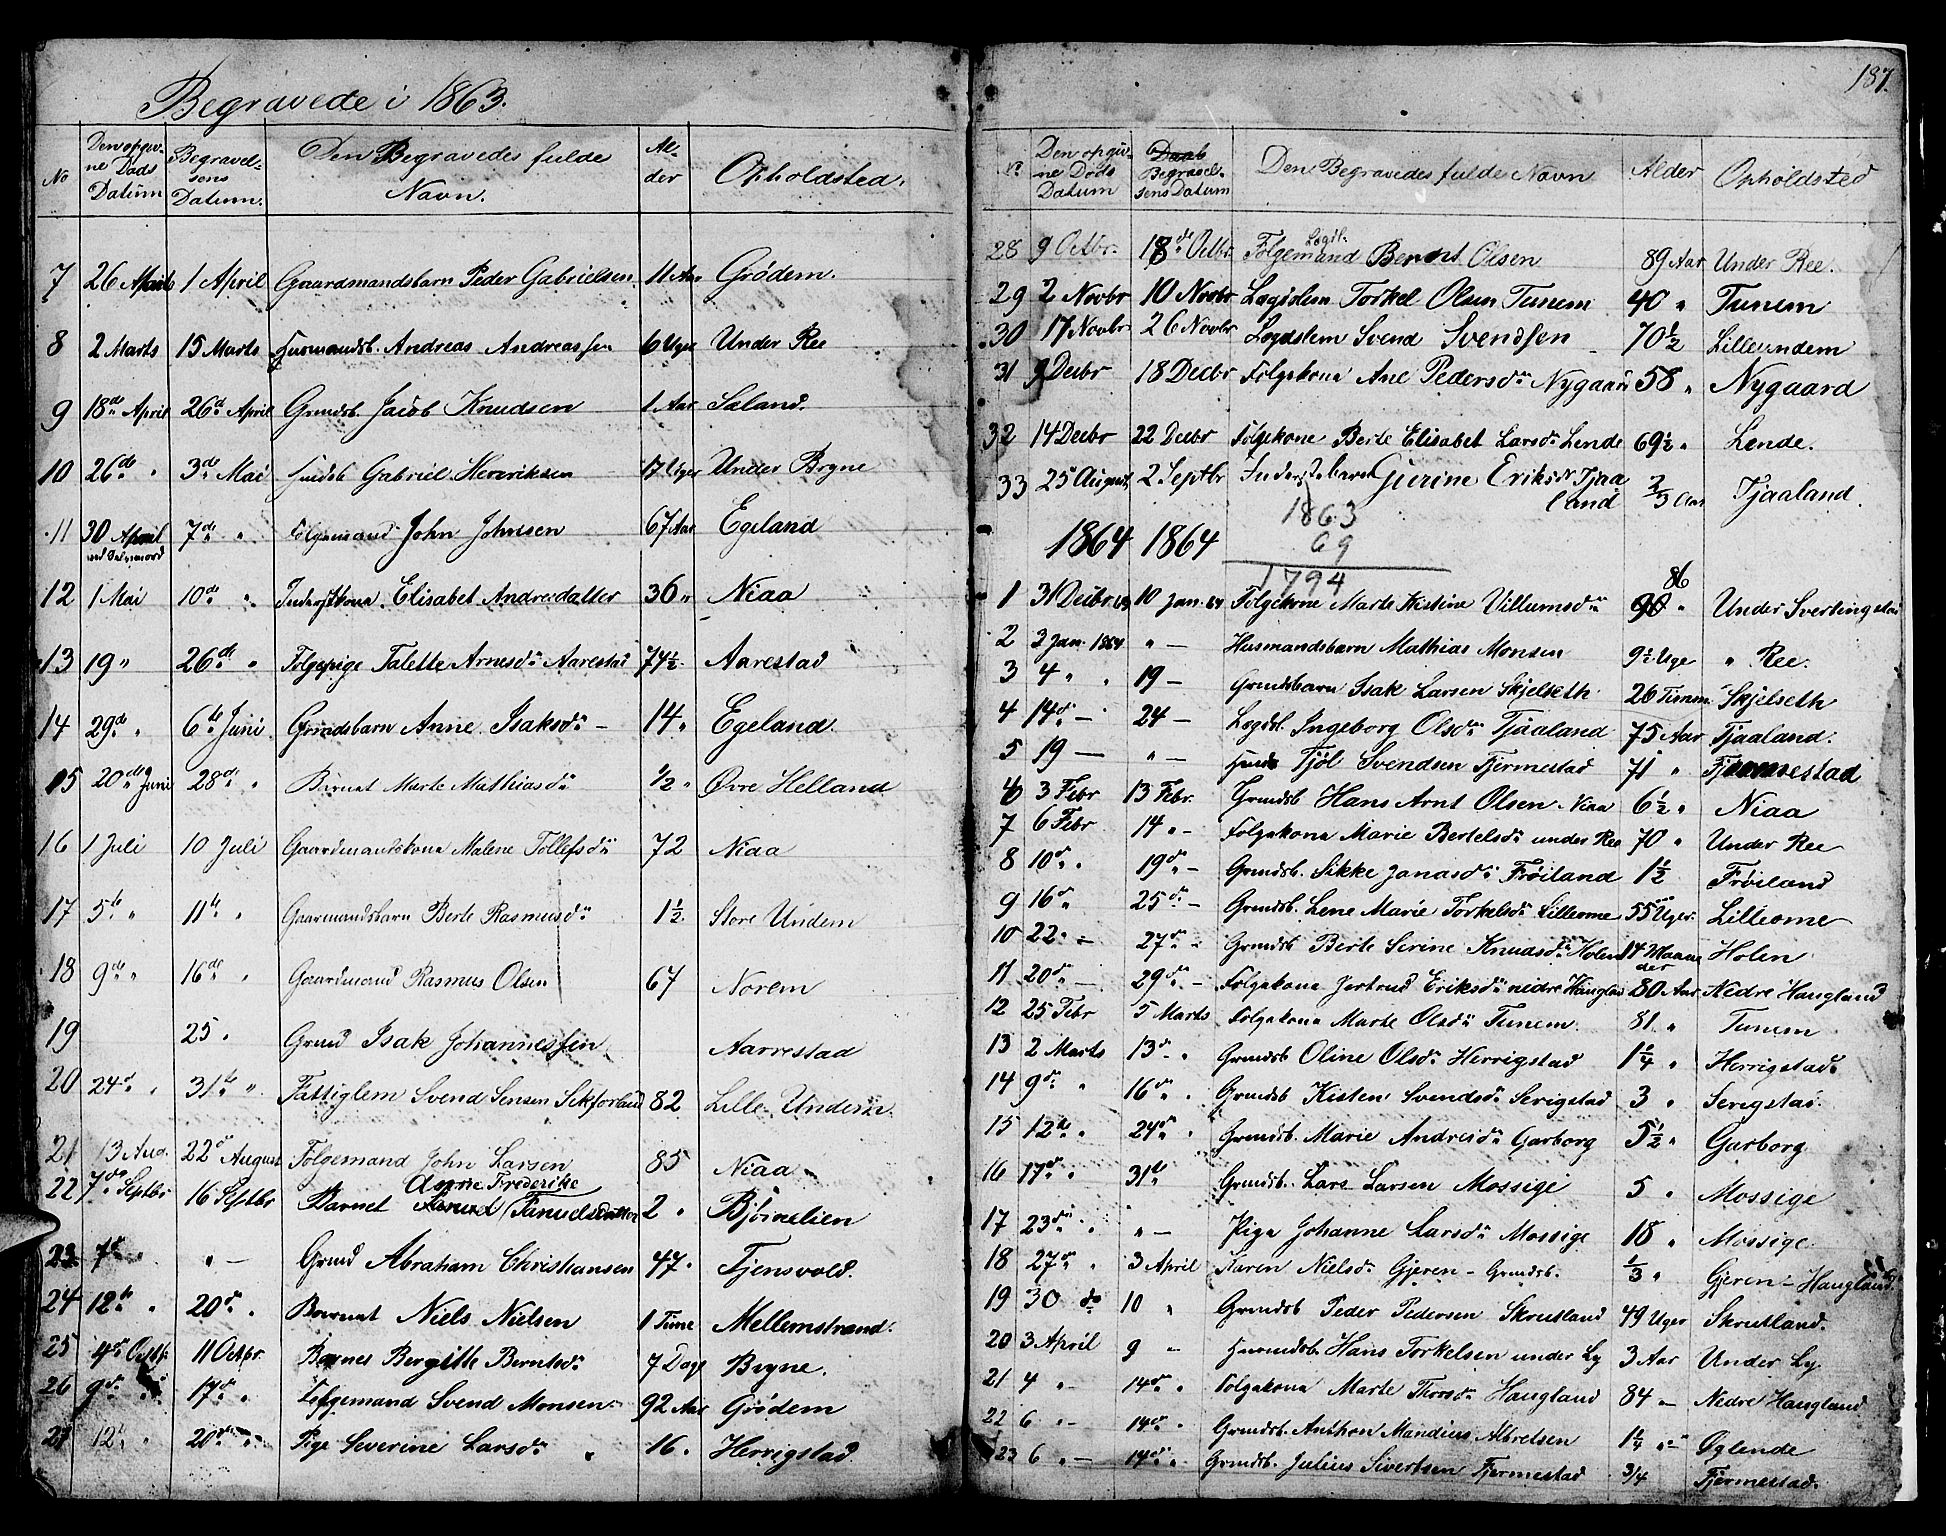 Begravede i 1863.
No | Den opgivne Døds Datum | Begravelsens Datum. | Den Begravedes fulde Navn. | Alder | Opholdsted.
7 | 26 Marts | 1 April | Gaardmandsbarn Peder Gabrielsen | 11 Aar | Grødem.
8 | 2 Marts | 15 Marts | Husmandsb. Andreas Andreassen | 6 Uger | Under Ree
9 | 18de April | 26de April | Grmdsb. Jacob Knudsen | 1 Aar | Saland.
10 | 26de " | 3de Mai | Hmdsb Gabriel Henriksen | 17 Uger | Under Bryne
11 | 30 April ved Selvmord | 7de " | Følgemand John Johnsen | 67 Aar | Egeland
12 | 1 Mai | 10de " | Inderstkona Elisabet Andreasdatter | 36 " | Niaa
13 | 19 " | 26de " | Følgepige Talette Arnesdr Aarestad | 74½ | Aarestad
14 | 29de " | 6te Juni | Grmdsbarn Anne Isaksdr - | 14 " | Egeland.
15 | 20de Juni | 28de " | Barnet Marte Mathiasdr | ½ " | Øvre Helland
16 | 1 Juli | 10 Juli | Gaardmandskona Malene Tollefsdr | 72 | Niaa
17 | 5te " | 11te " | Gaarmandsbarn Berte Rasmusdr | 1½ | Store Undem
18 | 9de " | 16de " | Gaardmand Rasmus Olsen | 67 | Norem
19 | 25 " | Grmd Isak Johannessen | Aarrestad
20 | 24de " | 31te " | Fattiglem Svend Jensen | 82 | Lille Undem
21 | 13 Aug. | 22de August | Følgemand John Larsen | 85 | Niaa
Anne Frederike
22 | 7de Septbr | 16 Septbr | Barnet | 2 " | Bjørnelien
23 | 7de " | " - | Grmd Abraham Christiansen | 47 " | Tjensvold.
24 | 12te " | 20de " | Barnet Niels Nielsen | 1 Time | Mellemstrand.
25 | 4de Octbr. | 11 Octbr. | Barnet Bergitte Berntsdr | 7 Dage | Bryne.
26 | 9de " | 17de " | Følgemand Svend Monsen | 92 Aar | Grødem
27 | 12te " | 20de " | Pige Severine Larsdr | 16 " | Herrigstad
187.
No | Den opgivne Døds Datum | Daab Begravelsens Datum | Den Begravedes fulde Navn | Alder | Opholdsted
28 | 9 Octbr. | 18de Octbr | Lægdl. Følgemand Berent Olsen | 89 Aar | Under Ree.
29 | 2 Novbr | 10 Novbr | Lægdslem Torkel Olsen Tunem | 40 " | Tunem
30 | 17 Novbr | 26 Novbr | Lægdslem Svend Svendsen | 70½ | Lilleundem
31 | 9 Decbr | 18 Decbr | Følgekona Ane Pedersdr Nygaard | 58 " | Nygaard
32 | 14 Decbr | 22 Decbr | Følgekone Berte Elisabet Larsdr Lende | 69½ " | Lende.
33 | 25 August | 2 Septbr | Inderstebarn Gurine Eriksdr Tjaaland | 2/3 Aar | Tjaaland.
1863
69
1794
1864 | 1864
1 | 31 Decbr 63 | 10 Jan. 64 | Følgekone Marte Kistine Villumsdr | 90 86 " | Under Svertingstad
2 | 3 Jan. 1864 | " - | Husmandsbarn Mathias Monsen | 9½ Uge | " Ree.
3 | 4 " " | 19 - | Grmdsbarn Isak Larsen Skjelseth | 26 Timer | Skjelseth
4 | 14de - | 24 - | Lægdsl. Ingeborg Olsdr Tjaaland | 75 Aar | Tjaaland.
5 | 19 - | " - | Tjøl Svendsen Fjermestad | 71 " | Fjermestad
6 | 3 Febr | 13 Febr. | Grmdsb Hans Arnt Olsen Niaa | 6½ " | Niaa
7 | 6 Febr | 14 " - | Følgekona Marie Bertelsdr under Ree | 70 " | Under Ree
8 | 10de " | 19de - | Grmdsb. Sikke Janasdr Frøiland | 1½ | Frøiland
9 | 16de " | 25de - | Grmdsb. Lene Marie Torkelsdr Lilleome | 55 Uger | Lilleome
10 | 22 " - | 27de - | Grmdsb Berte Serine Knudsdr Holen | 14 Maaneder | Holen
11 | 20de " | 29de - | Følgekona Jertrud Eriksdr nedre Haugland | 80 Aar | Nedre Haugland
12 | 25 Febr | 5 Marts | Følgekona Marte Olsdr Tunem. | 81 " | Tunem
13 | 2 Marts | 13de " | Grmdsb Oline Olsdr Herrigstad | 1¼ " | Herrigstad.
14 | 9de " | 16de " | Grmdsb Kisten Svendsdr Serigstad | 3 " | Serigstad.
15 | 12de " | 24de " | Grmdsb. Marie Andresdr Garborg | 5½ " | Garborg
16 | 17de " | 31te | Grmdsb. Lars Larsen Mossige | 5 " | Mossige
17 | 23de " | " - | Piga Johanne Larsdr Mossige | 18 " | Mossige
18 | 27de " | 3 April | Karen Nielsdr Gjeren - Grmdsb. | 1/3 " | Gjeren - Haugland
19 | 30 do | 10 " | Grmdsb Peder Pedersen Skrutland | 49 Uger | Skrutland.
20 | 3 April | 9 " | Husmdsb Hans Torkelsen under Ly | 3 Aar | Under Ly
21 | 4 " - | 14de " | Følgekona Marte Thorsdr Haugland | 84 - | Nedre Haugland
22 | 6 " - | 14de " | Grmdsb. Anthon Mandius Albretsen | 1¼ " | Øglende
23 | 6 " - | 14de " | Grmdsb. Julius Sivertsen Fjermestad | 3/4 | Fjermestad.